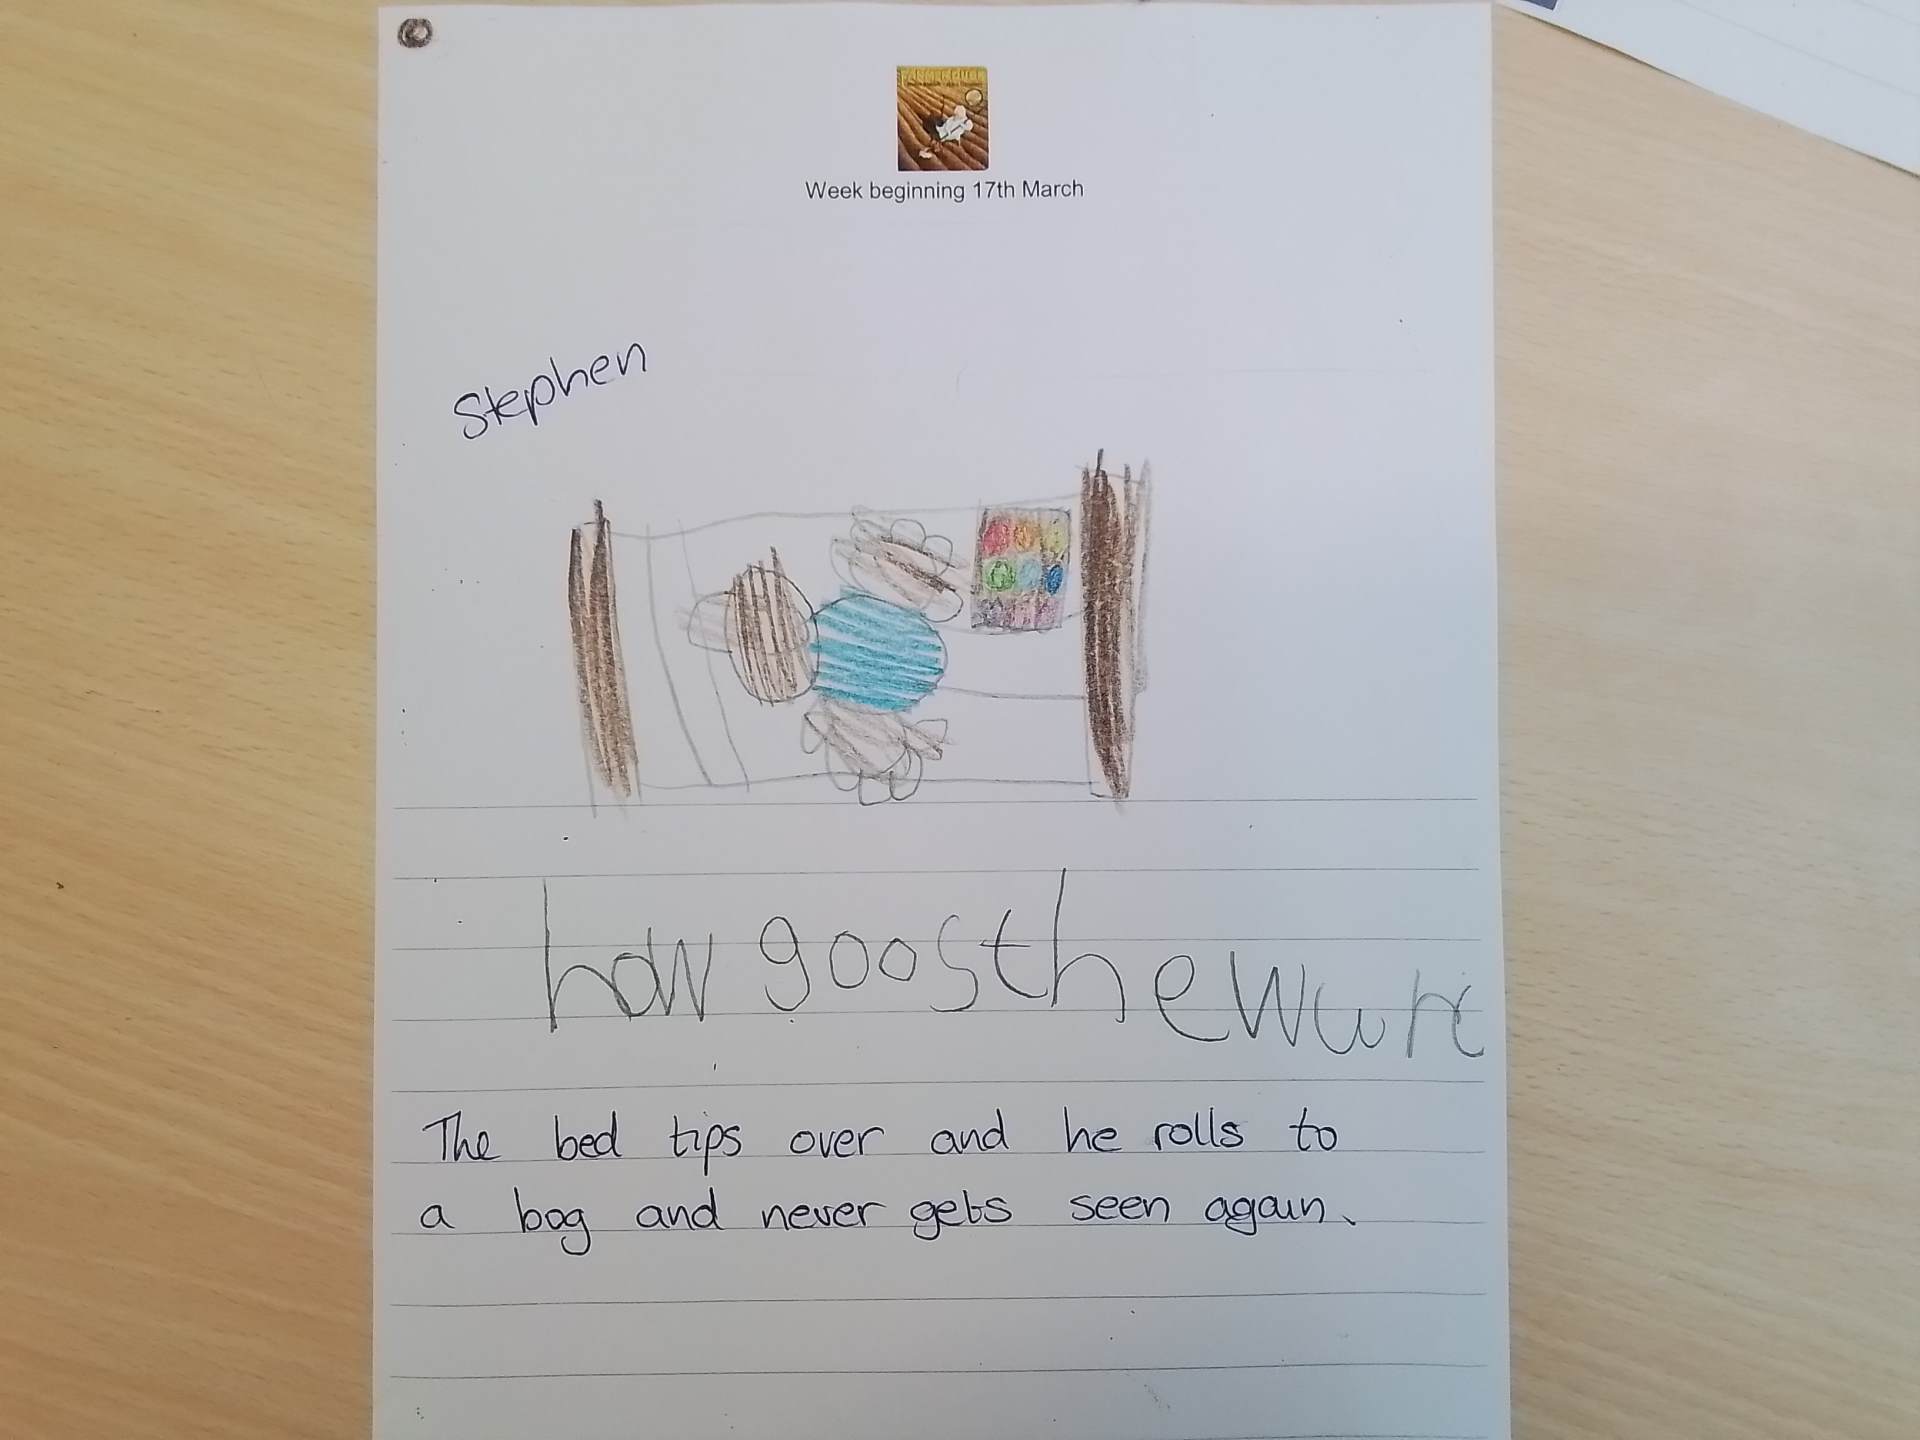 FARMER DUCK
Week beginning 17th March
Stephen
how goos the wurk
The bed tips over and he rolls to
a bog and never gets seen again.